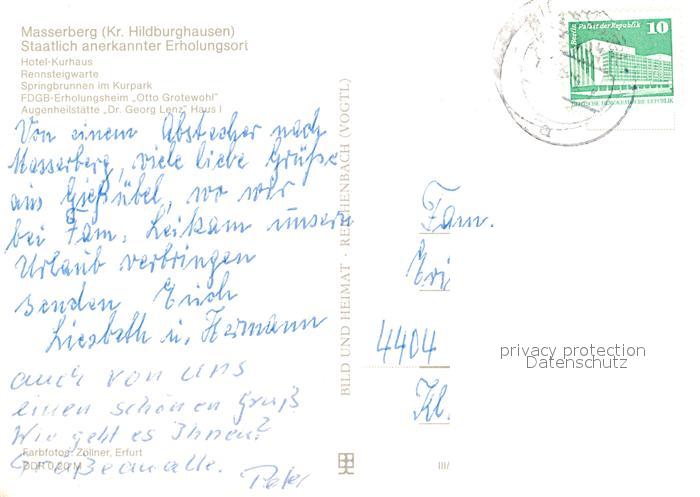 Masserberg (Kr. Hildburghausen)
Staatlich anerkannter Erholungsort
Hotel-Kurhaus
Rennsteigwarte
Springbrunnen im Kurpark
FDGB-Erholungsheim „Otto Grotewohl"
Augenheilstätte „Dr. Georg Lenz" Haus I
Von einem Abstecher nach
Masserberg, viele liebe Grüße
aus Gießübel, wo wir
bei Fam. Leikam unsern
Urlaub verbringen
senden Euch
Liesbeth u. Hermann
auch von uns
einen schönen Gruß
Wie geht es Ihnen?
Grüße an alle. Peter
Farbfotos: Zöllner, Erfurt
DDR 0,20 M
BILD UND HEIMAT · REICHENBACH (VOGTL)
III/
Berlin, Palast der Republik
10
DEUTSCHE DEMOKRATISCHE REPUBLIK
Fam.
4404
Kl.
privacy protection
Datenschutz